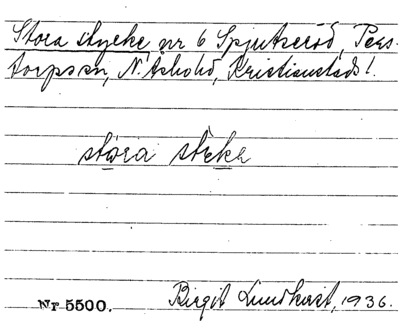 Stora stycke nr 6 Spjutseröd, Pers-
torps sn, N. Åsbo hd, Kristianstads l.
stora steke
Nr 5500. Birgit Lundkvist, 1936.